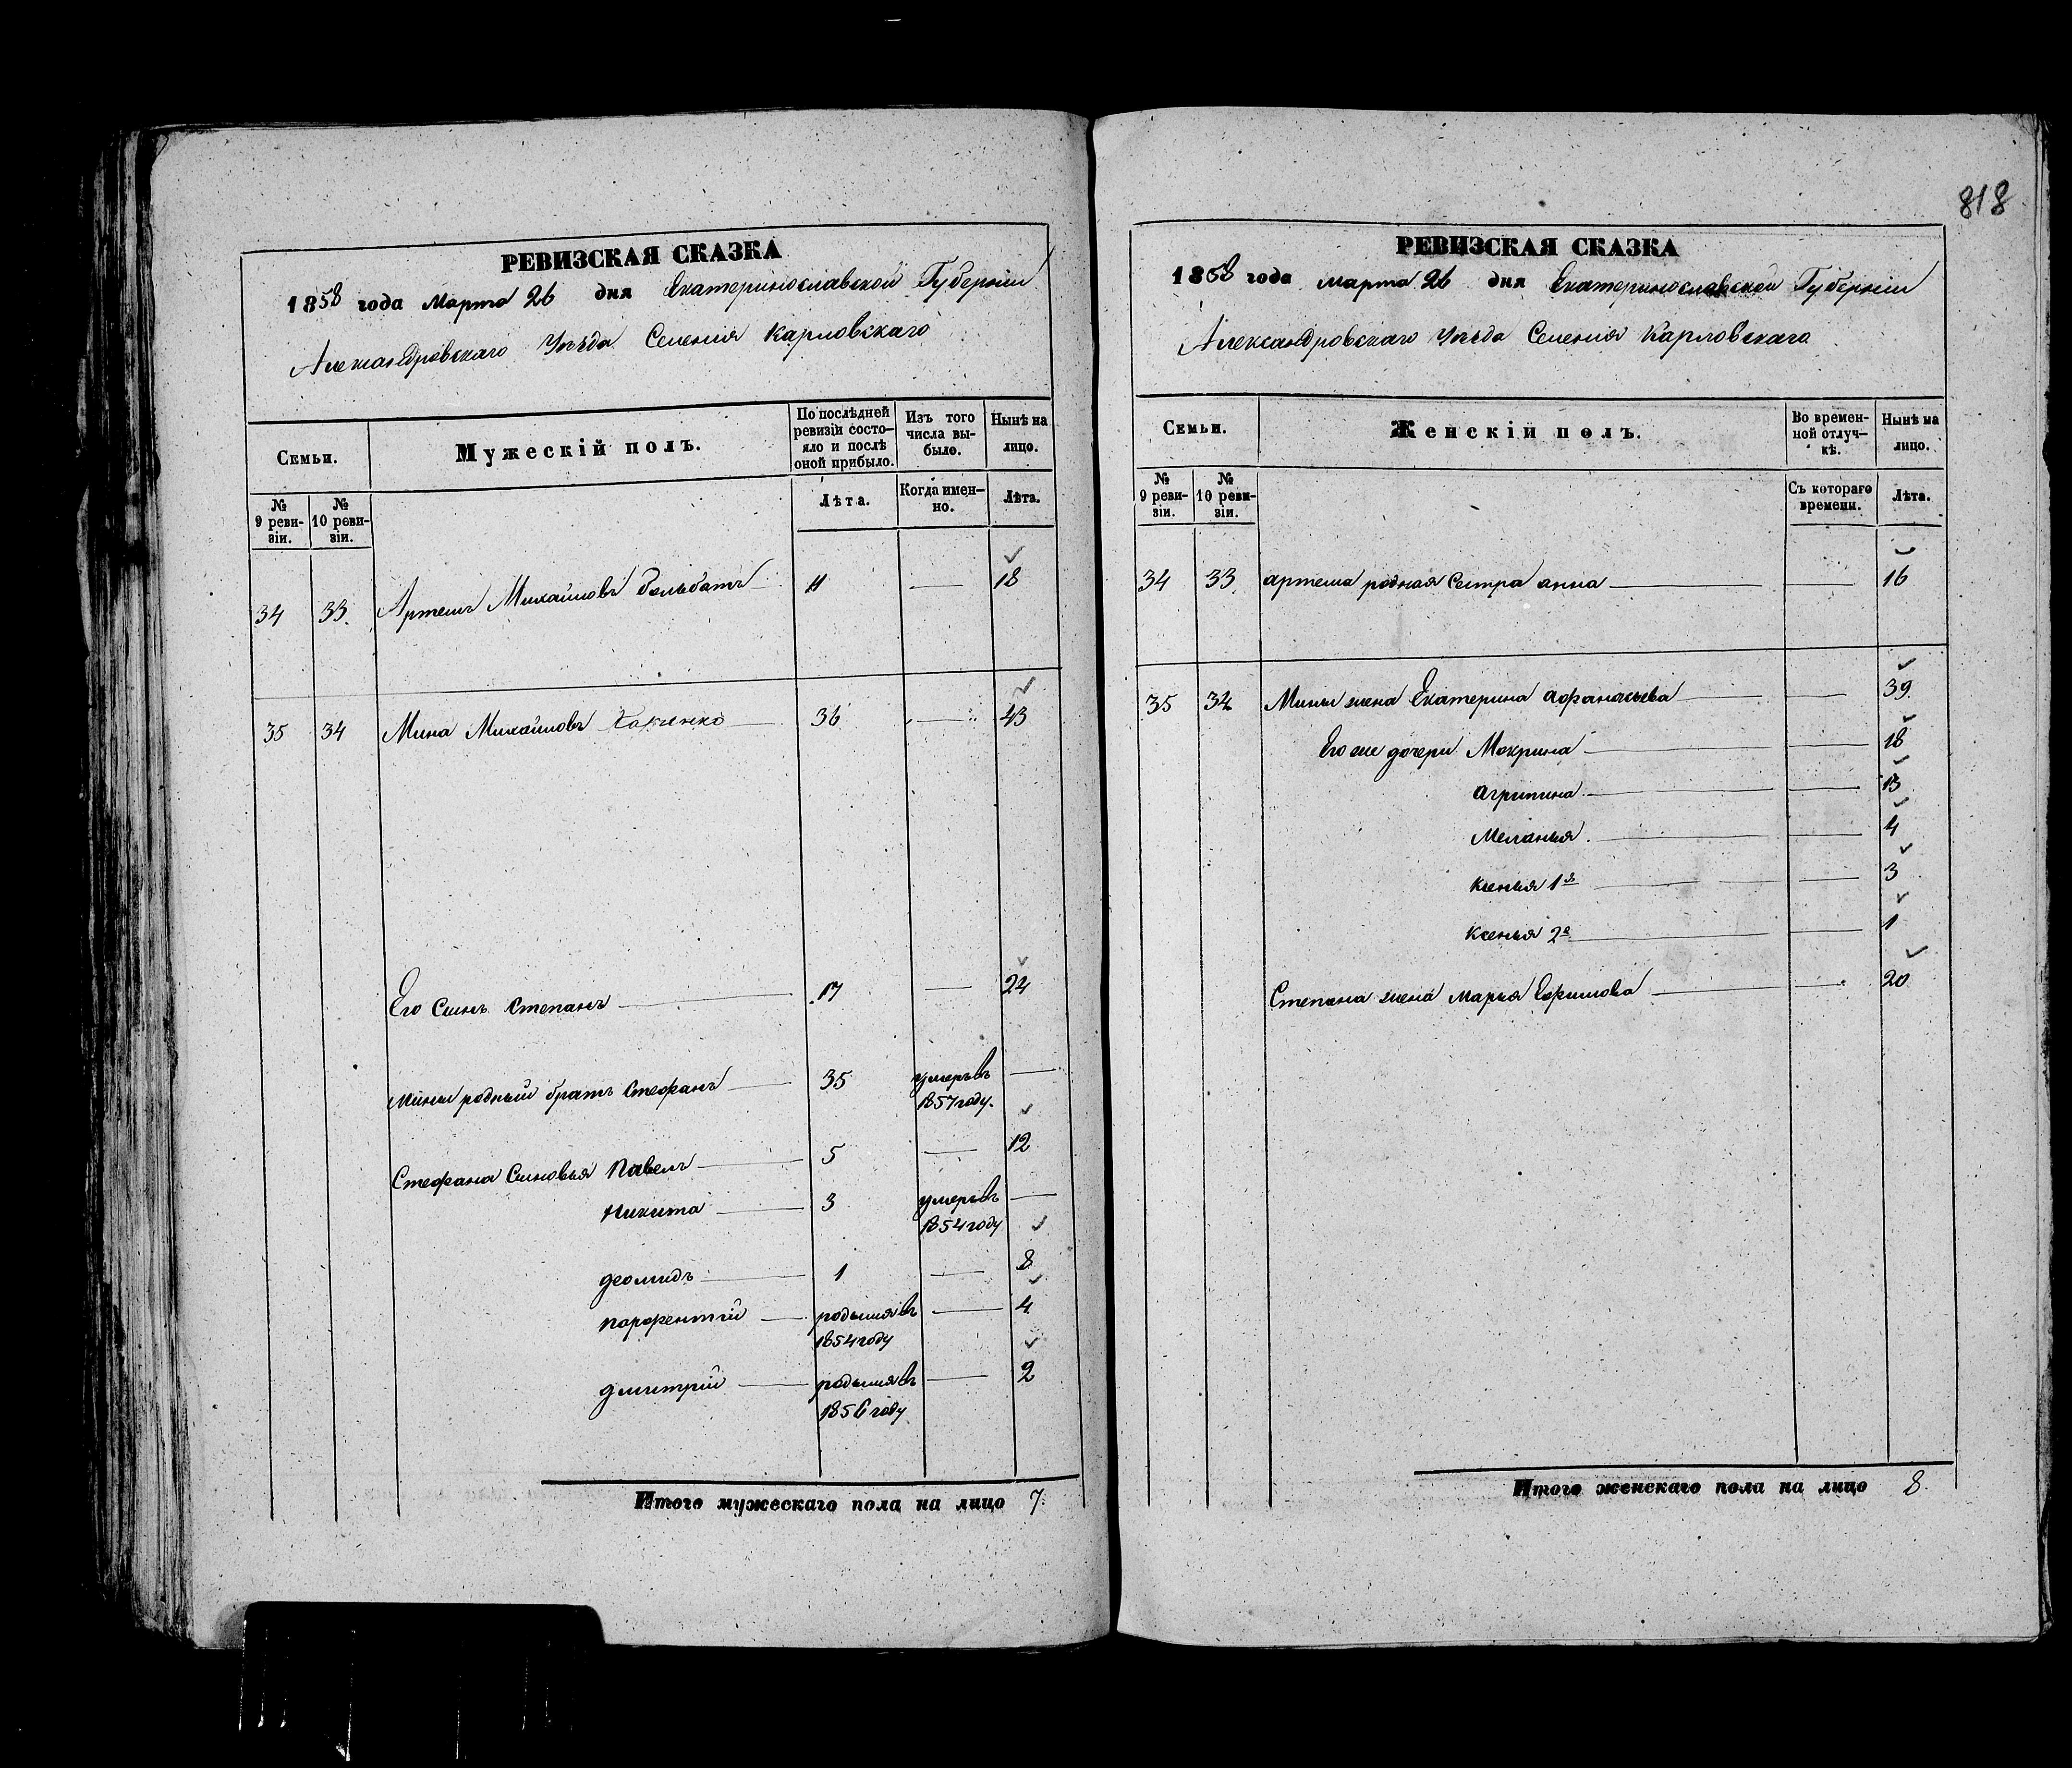 РЕВИЗСКАЯ СКАЗКА
1858 года Марта 26 дня Екатеринославской Губерніи
Александровскаго Уѣзда Селенія Карловскаго
Семьи.
Мужескій полъ.
По послѣдней ревизіи состо-
яло и послѣ
оной прибыло.
Изъ того
числа вы-
было.
Нынѣ на
лицо.
№
9 реви-
зіи.
№
10 реви-
зіи.
Лѣта.
Когда имен-
но.
Лѣта.
34 33. Артемъ Михайловъ 11 — 18
35 34 Мина Михайловъ 36 — 43
Его Сынъ Степанъ — 17 — 24
Мины родный братъ Стефанъ — 35 умеръ въ —
1857 году.
Стефана Сыновья Павелъ — 5 — 12
Никита — 3 умеръ въ —
1854 году
Деомидъ — 1 — 8
Парфентій — родился въ — 4
1854 году
Дмитрій — родился въ — 2
1856 году
Итого мужескаго пола на лицо 7.
818
РЕВИЗСКАЯ СКАЗКА
1858 года марта 26 дня Екатеринославской Губерніи
Александровскаго Уѣзда Селенія Карловскаго
Семьи.
Женскій полъ.
Во времен-
ной отлуч-
кѣ.
Нынѣ на
лицо.
№
9 реви-
зіи.
№
10 реви-
зіи.
Съ котораго
времени.
Лѣта.
34 33. Артема родная Сестра Анна — — 16
35 34 Мины жена Екатерина Афанасьева — — 39.
Его же дочери Мокрина — — 18
Агрипина — — 13
Меланья. — — 4
Ксенья 1я — — 3
Ксенья 2я — — 1
Степана жена Марья Ефимова — — 20
Итого женскаго пола на лицо 8.